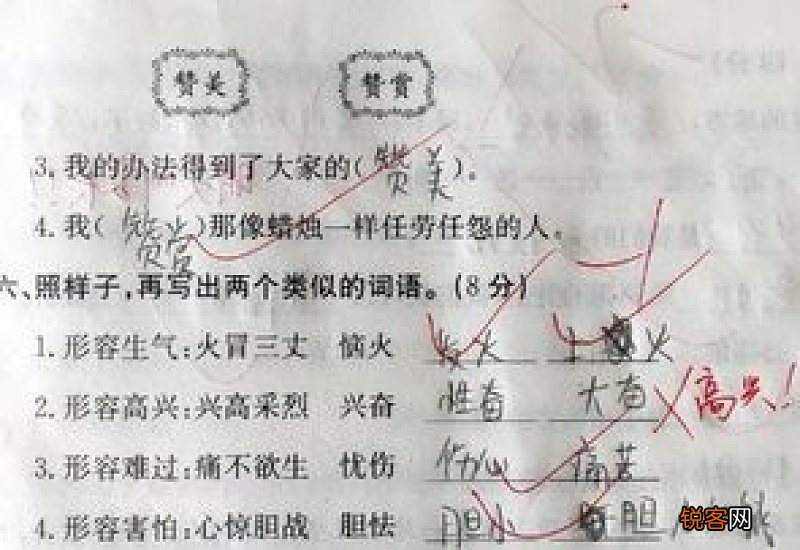 赞美 赞赏
3.我的办法得到了大家的(赞美)。
4.我(赞赏)那像蜡烛一样任劳任怨的人。
六、照样子,再写出两个类似的词语。(8分)
1.形容生气:火冒三丈 恼火 发火 上火
2.形容高兴:兴高采烈 兴奋 性奋 大奋 高兴!
3.形容难过:痛不欲生 忧伤 伤心 痛苦
4.形容害怕:心惊胆战 胆怯 胆小
锐客网